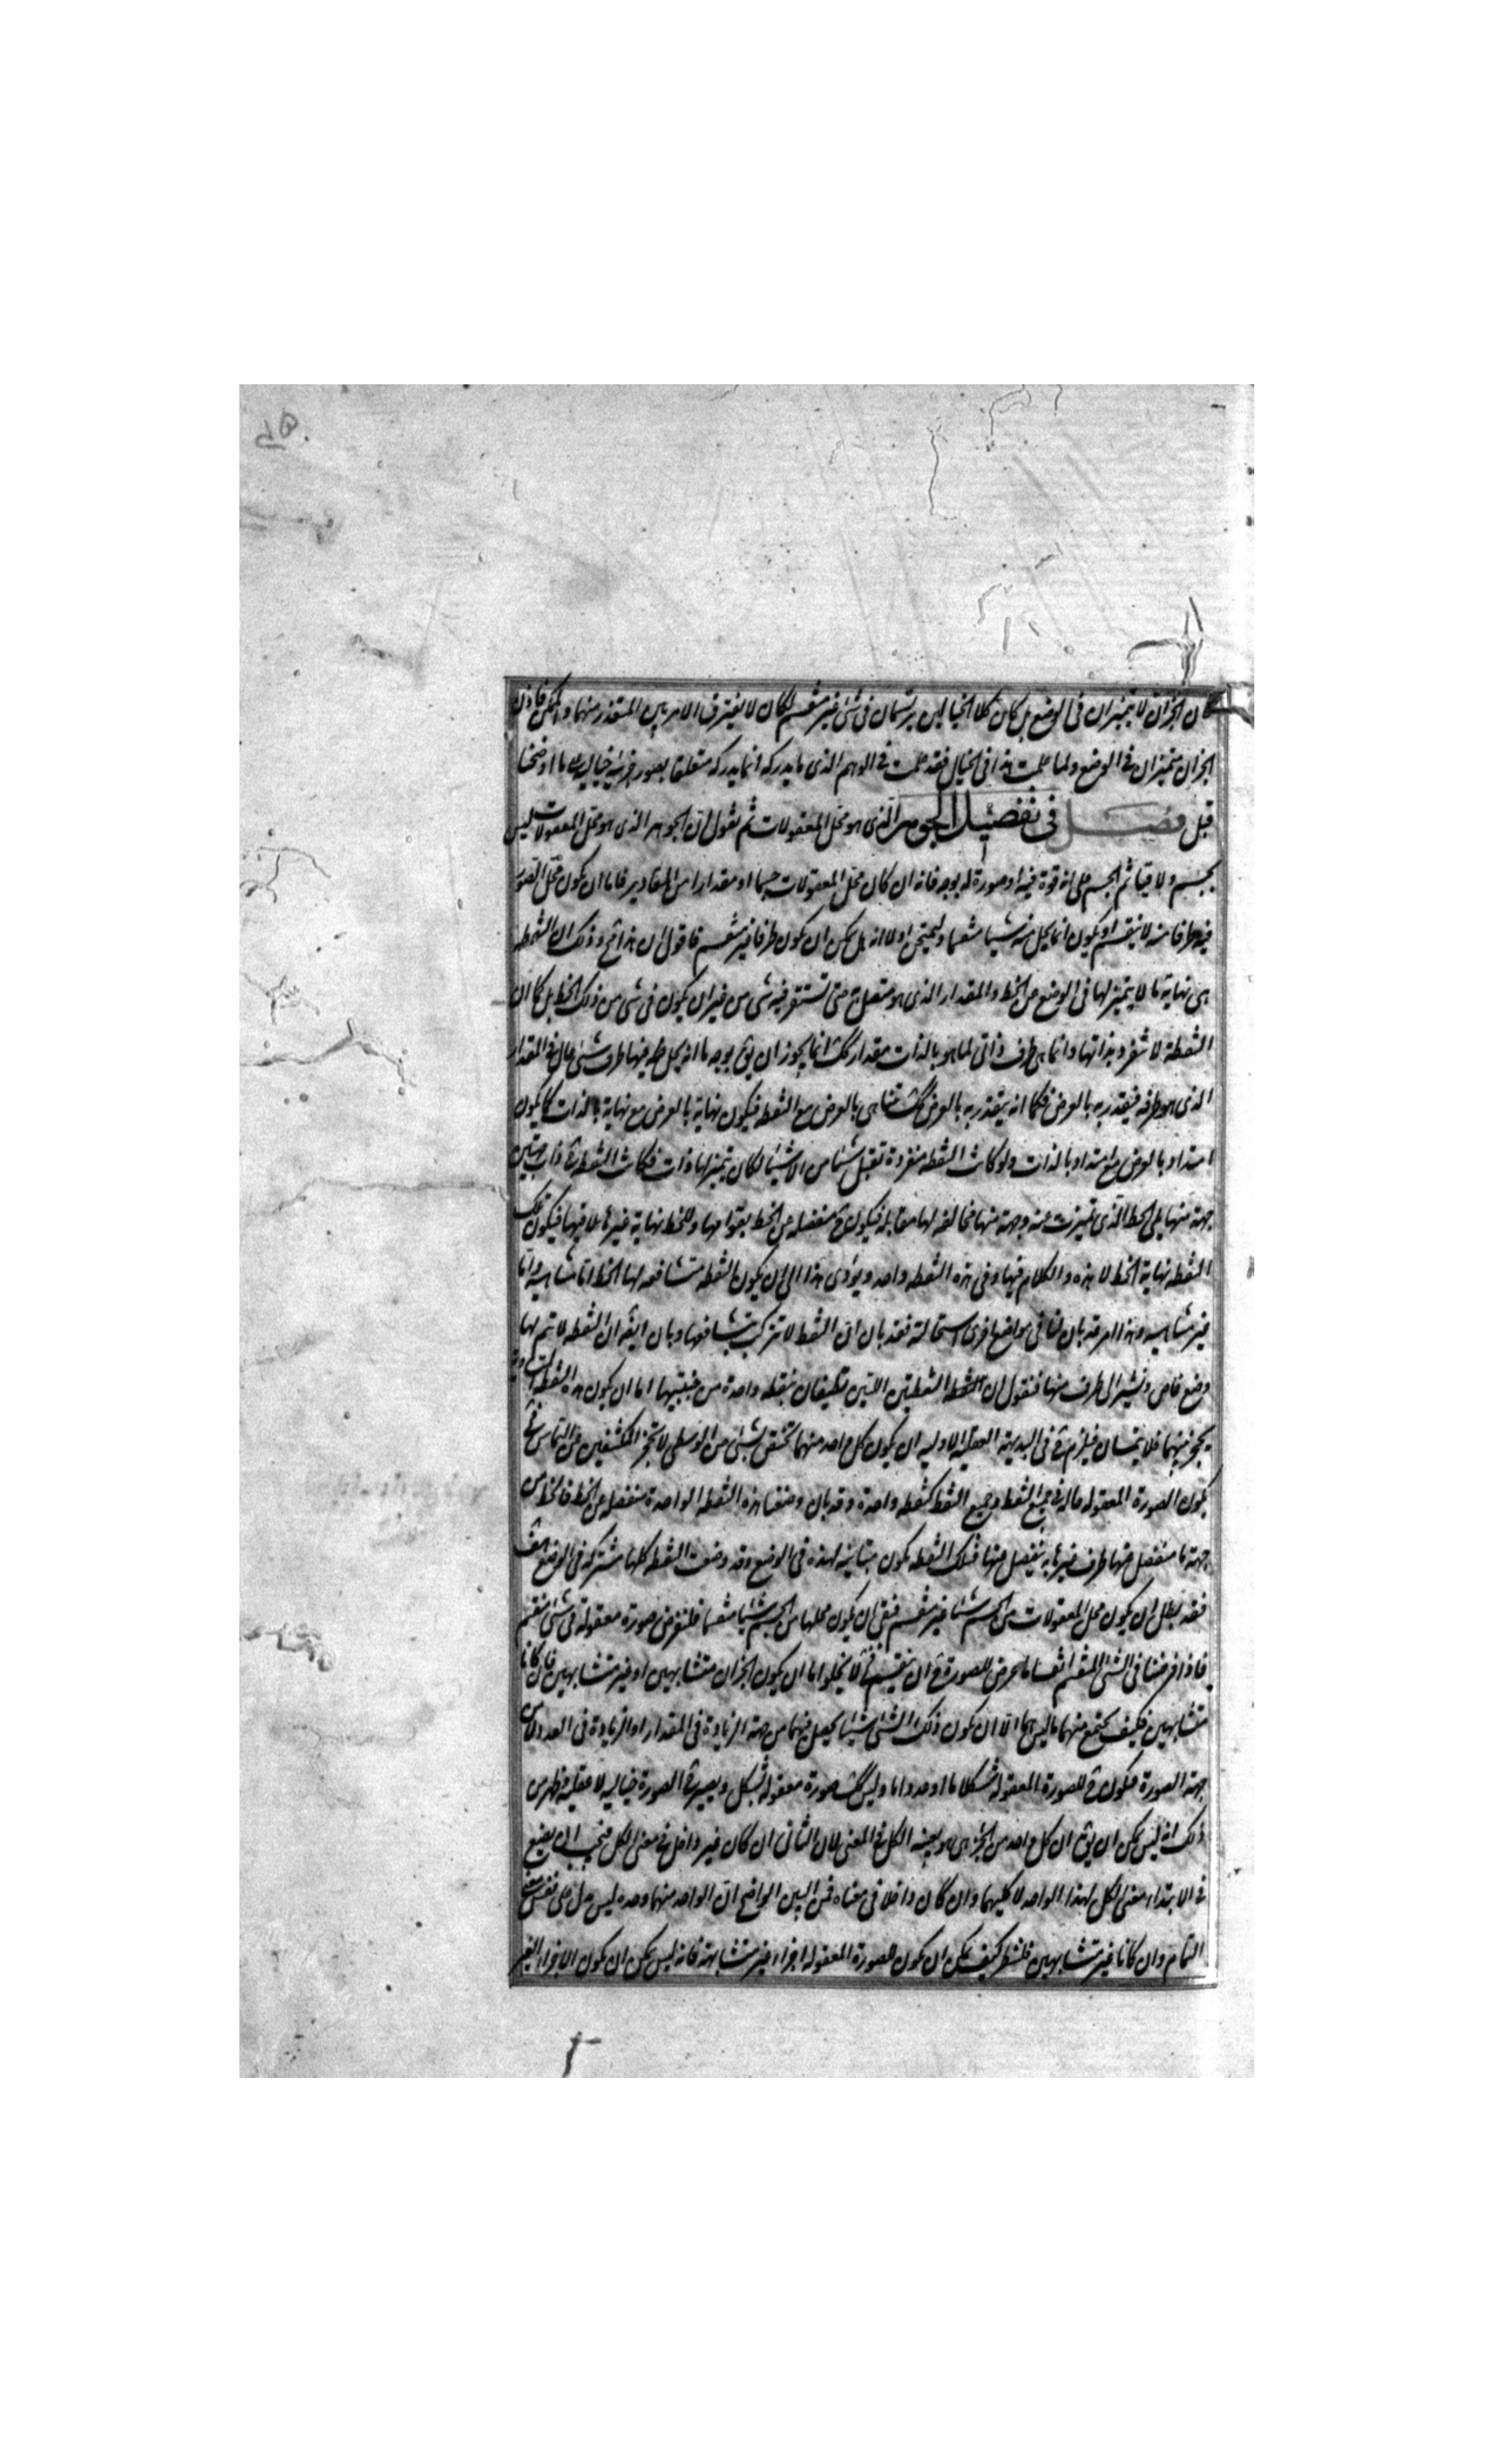 كان الجزآن لا يتميزان فى الوضع بل كان كلا الخيالين يرتسمان فى شئ غير منقسم لكان لا يفترق الامر بين المتعذر منهما والممكن فاذن
الجزآن متميزان فى الوضع ولما علمت هذا فى الخيال فقد علمت فى الوهم الذى ما يدركه انما يدركه متعلقا بصورة جزئية خيالية على ما اوضحنا
قبل فصل فى تفصيل الجوهر الذى هو محل المعقولات ثم نقول ان الجوهر الذى هو محل المعقولات ليس
بجسم ولا قيا ثم الجسم على انه قوة فيه او صورة له بوجه فانه ان كان محل المعقولات جسما او مقدارا من المقادير فاما ان يكون محل الصور
فيه طرفا منه لا ينقسم او يكون انما يحل منه شيئا منقسما ولنمتحن اولا انه هل يمكن ان يكون طرفا غير منقسم فاقول ان هذا مح وذلك ان النقطة
هى نهاية ما لا يتميز لها فى الوضع عن الخط والمقدار الذى هو متصل بها حتى تستقر فيه شى من غير ان يكون فى شى من ذلك الخط بل كما ان
النقطة لا تنفرد بذاتها وانما هى طرف ذاتى لما هو بالذات مقدار كك انما يجوز ان يق بوجه ما انه يحل فيها طرف شئ حال فى المقدار
الذى هو طرفه فيتقدر به بالعرض فكما انه يتقدر به بالعرض كك يتناهى بالعرض مع النقطه فيكون نهاية بالعرض مع نهاية بالذات كما يكون
امتداد بالعرض مع امتداد بالذات ولو كانت النقطه منفردة تقبل شيئا من الاشياء لكان يتميز لها ذات فكانت النقطه ح ذات جهتين
جهة منها يلى الخط الذى تميزت عنه وجهة منها مخالفه لها مقابله فيكون ح منفصله عن الخط بقوامها وللخط نهاية غيرها يلاقيها فيكون تلك
النقطه نهاية الخط لا هذه والكلام فيها وفى هذه النقطه واحد ويؤدى هذا الى ان يكون النقطه متشافعه لها الخط اما متناهيه واما
غير متناهيه وهذا امر قد بان لنا فى مواضع اخرى استحالته فقد بان ان النقط لا تتركب بتشافعها وبان ايضا ان النقطه لا يتم لها
وضع خاص ونشير الى طرف منها فنقول ان النقطتين اللتين تطيفان بنقطه واحدة من جنبتيها اما ان يكون هذه النقطه
يحجز بينهما فلا يتماسان فيلزم ح فى البديهة العقليه الاوليه ان يكون كل واحد منهما تختص بشئ من الوسطى لا تحجز المكتنفتين عن التماس فح
يكون الصورة المعقوله حاله فى جميع النقط وجميع النقط كنقطه واحدة وقد بان وضعنا هذه النقطه الواحدة منفصله عن الخط فالخط من
جهة ما منفصل منها طرف غيرها به ينفصل منها فتلك النقطه يكون مباينه لهذه فى الوضع وقد وضعت النقط كلها مشتركه فى الوضع هف
فقد بطل ان يكون محل المعقولات من الجسم شيئا غير منقسم فبقى ان يكون محلها من الجسم شيئا منقسما فلنفرض صورة معقولة فى شئ منقسم
فاذا فرضنا فى الشئ المنقسم انقساما عرض للصورة ان تنقسم فح لا يخلوا اما ان يكون الجزآن متشابهين او غير متشابهين فان كانا
متشابهين فكيف يجتمع منهما ما ليس هما الا ان يكون ذلك الشئ شيئا يحصل فيهما من جهة الزيادة فى المقدار او الزيادة فى العدد لا من
جهة الصورة فيكون ح للصورة المعقوله شكلا ما او عددا ما وليس كك صورة معقوله بشكل ويصير ح الصورة خياليه لا عقليه واظهر من
ذلك انه ليس يمكن ان يق ان كل واحد من الجزءين هو بعينه الكل فى المعنى لان الثانى ان كان غير داخل فى معنى الكل فيجب ان يضع
فى الابتداء معنى الكل لهذا الواحد لا كليهما وان كان داخلا فى معناه فمن البين الواضح ان الواحد منهما وحده ليس يدل على نفس معنى
التمام وان كانا غير متشابهين فلننظر كيف يمكن ان يكون للصورة المعقوله اجزاء غير متشابهة فانه ليس يمكن ان يكون الاجزاء الغير